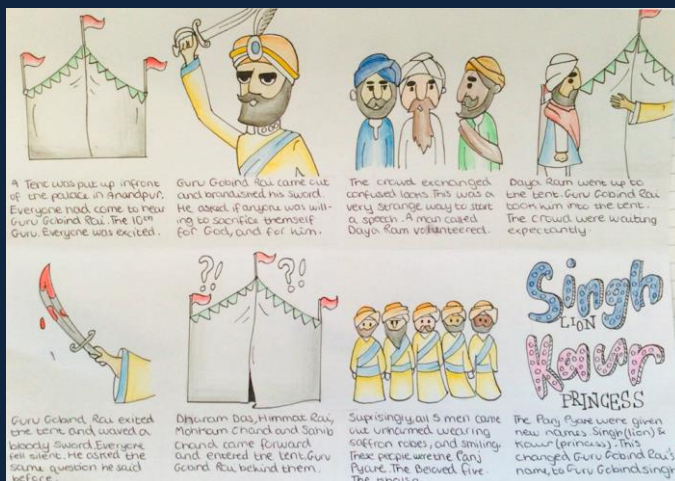 A Tent was put up infront
of the palace in Anandpur.
Everyone had come to hear
Guru Gobind Rai. The 10th
Guru. Everyone was excited.
Guru Gobind Rai came out
and brandished his sword.
He asked if anyone was will-
ing to sacrifice themself
for God, and for him.
The crowd exchanged
confused looks. This was a
very strange way to start
a speech. A man called
Daya Ram volunteered.
Daya Ram went up to
the tent. Guru Gobind Rai
took him into the tent.
The crowd were waiting
expectantly.
Guru Gobind Rai exited
the tent and waved a
bloody sword. Everyone
fell silent. He asked the
same question he said
before.
?!
?!
Dharam Das, Himmat Rai,
Mohkam Chand and Sahib
Chand came forward
and entered the tent. Guru
Gobind Rai behind them.
Suprisingly, all 5 men came
out unharmed wearing
saffron robes, and smiling.
These people were the Panj
Pyare. The Beloved five.
The
Singh
LION
Kaur
PRINCESS
The Panj Pyare were given
new names. Singh (lion) &
Kaur (princess). This
changed Guru Gobind Rai's
name, to Guru Gobind singh